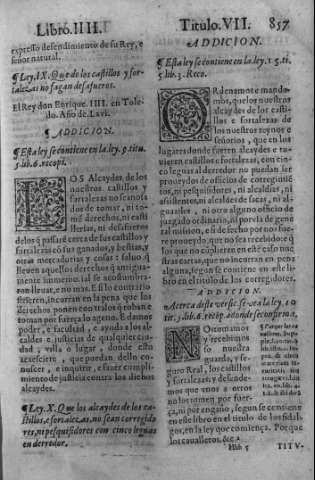 Libro. IIII.
expresso defendimiento de su Rey, e
señor natural.
¶ Ley. IX. Que de los castillos y for-
talezas no hagan desafueros.
El Rey don Enrique. IIII. en Tole-
do. Año de. Lxii.
¶ ADDICION.
¶ Esta ley se contiene en la ley. 9. titu.
5. lib. 6. recopi.
LOS Alcaydes, de los
nuestros castillos y
fortalezas no sean osa
dos de tomar, ni to-
mẽ derechos, ni casti
llerias, ni desafueros
delos q̃ passarẽ cerca de sus castillos y
fortalezas cõ sus ganados, y bestias, y
otras mercadurias y cosas: saluo q̃
lleuen aquellos derechos q̃ antigua-
mente
ron lleuar, e no mas. E si lo contrario
hizieren, incurran en la pena que los
derechos ponen contra los q̃ roban e
toman por fuerça lo ageno. E damos
poder, e facultad, e ayuda a los al-
caldes e justicias de qualquier ciu-
dad, villa o lugar, donde esto
acaesciere, que puedan dello cono-
scer, e inquirir, e hazer cumpli-
miento de justicia contra los dichos
alcaydes.
¶ Ley. X. Que los alcaydes de los ca-
stillos, e fortalezas, no sean corregido
res, ni pesquisidores con cinco leguas
en derredor.
Titulo. VII. 857
ADDICION.
¶ Esta ley se contiene en la ley. 15. ti.
5. lib. 3. Reco.
Ordenamos e manda-
mos, que los nuestros
alcaydes de los casti
llos e fortalezas de
los nuestros reynos e
señorios, que en los
lugares donde fueren alcaydes e tu-
uieren castillos e fortalezas, con cin-
co leguas al derredor no puedan ser
proueydos de officios de corregimiẽ
tos, ni pesquisidores, ni alcaldias, ni
asistentes, ni alcaldes de sacas, ni al-
guaziles, ni otro alguno officio de
juzgado ordinario, ni por via de gene
ral mision, e si de fecho por nos fue-
re proueydo, que no sea recebido: e q̃
los que no cũplieren en este caso nue
stras cartas, que no incurran en pena
alguna, segun se contiene en este
libro en el titulo de los corregidores.
ADDICION.
¶ Acerca deste versic. se vea la ley. 10
tit. 5. lib. 6. recop. adonde se confirma,
NOs tomamos
y recebimos
so nuestra
guarda, y se-
guro Real, los castillos
y fortalezas: y defende-
mos que vnos a otros
no los tomen por fuer-
ça, ni por engaño, segun se contiene
en este libro en el titulo de los fidal-
gos, en la ley que comiença. Porque
los caualleros. &c.
Hhh 5 TITV.